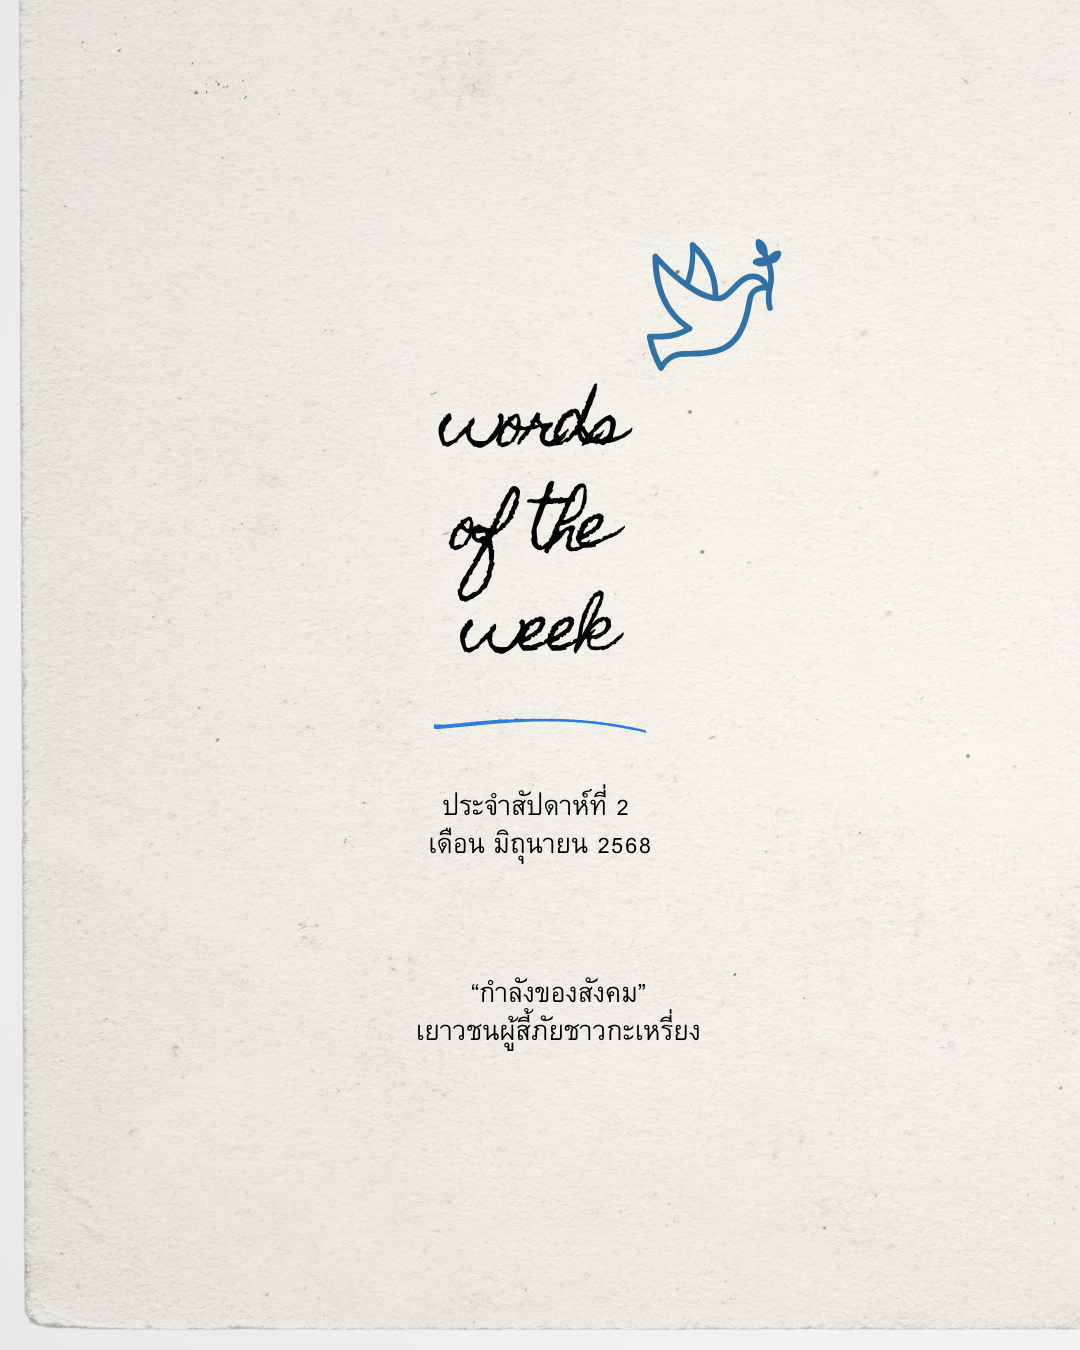 words
of the
week
ประจำสัปดาห์ที่ 2
เดือน มิถุนายน 2568
“กำลังของสังคม”
เยาวชนผู้ลี้ภัยชาวกะเหรี่ยง